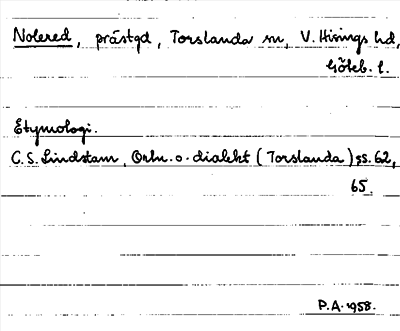 Nolered, prästgd, Torslanda sn, V. Hisings hd,
Göteb. l.
Etymologi.
C.S. Lindstam, Ortn. o. dialekt (Torslanda) ss. 62,
65.
P.A. 1958.